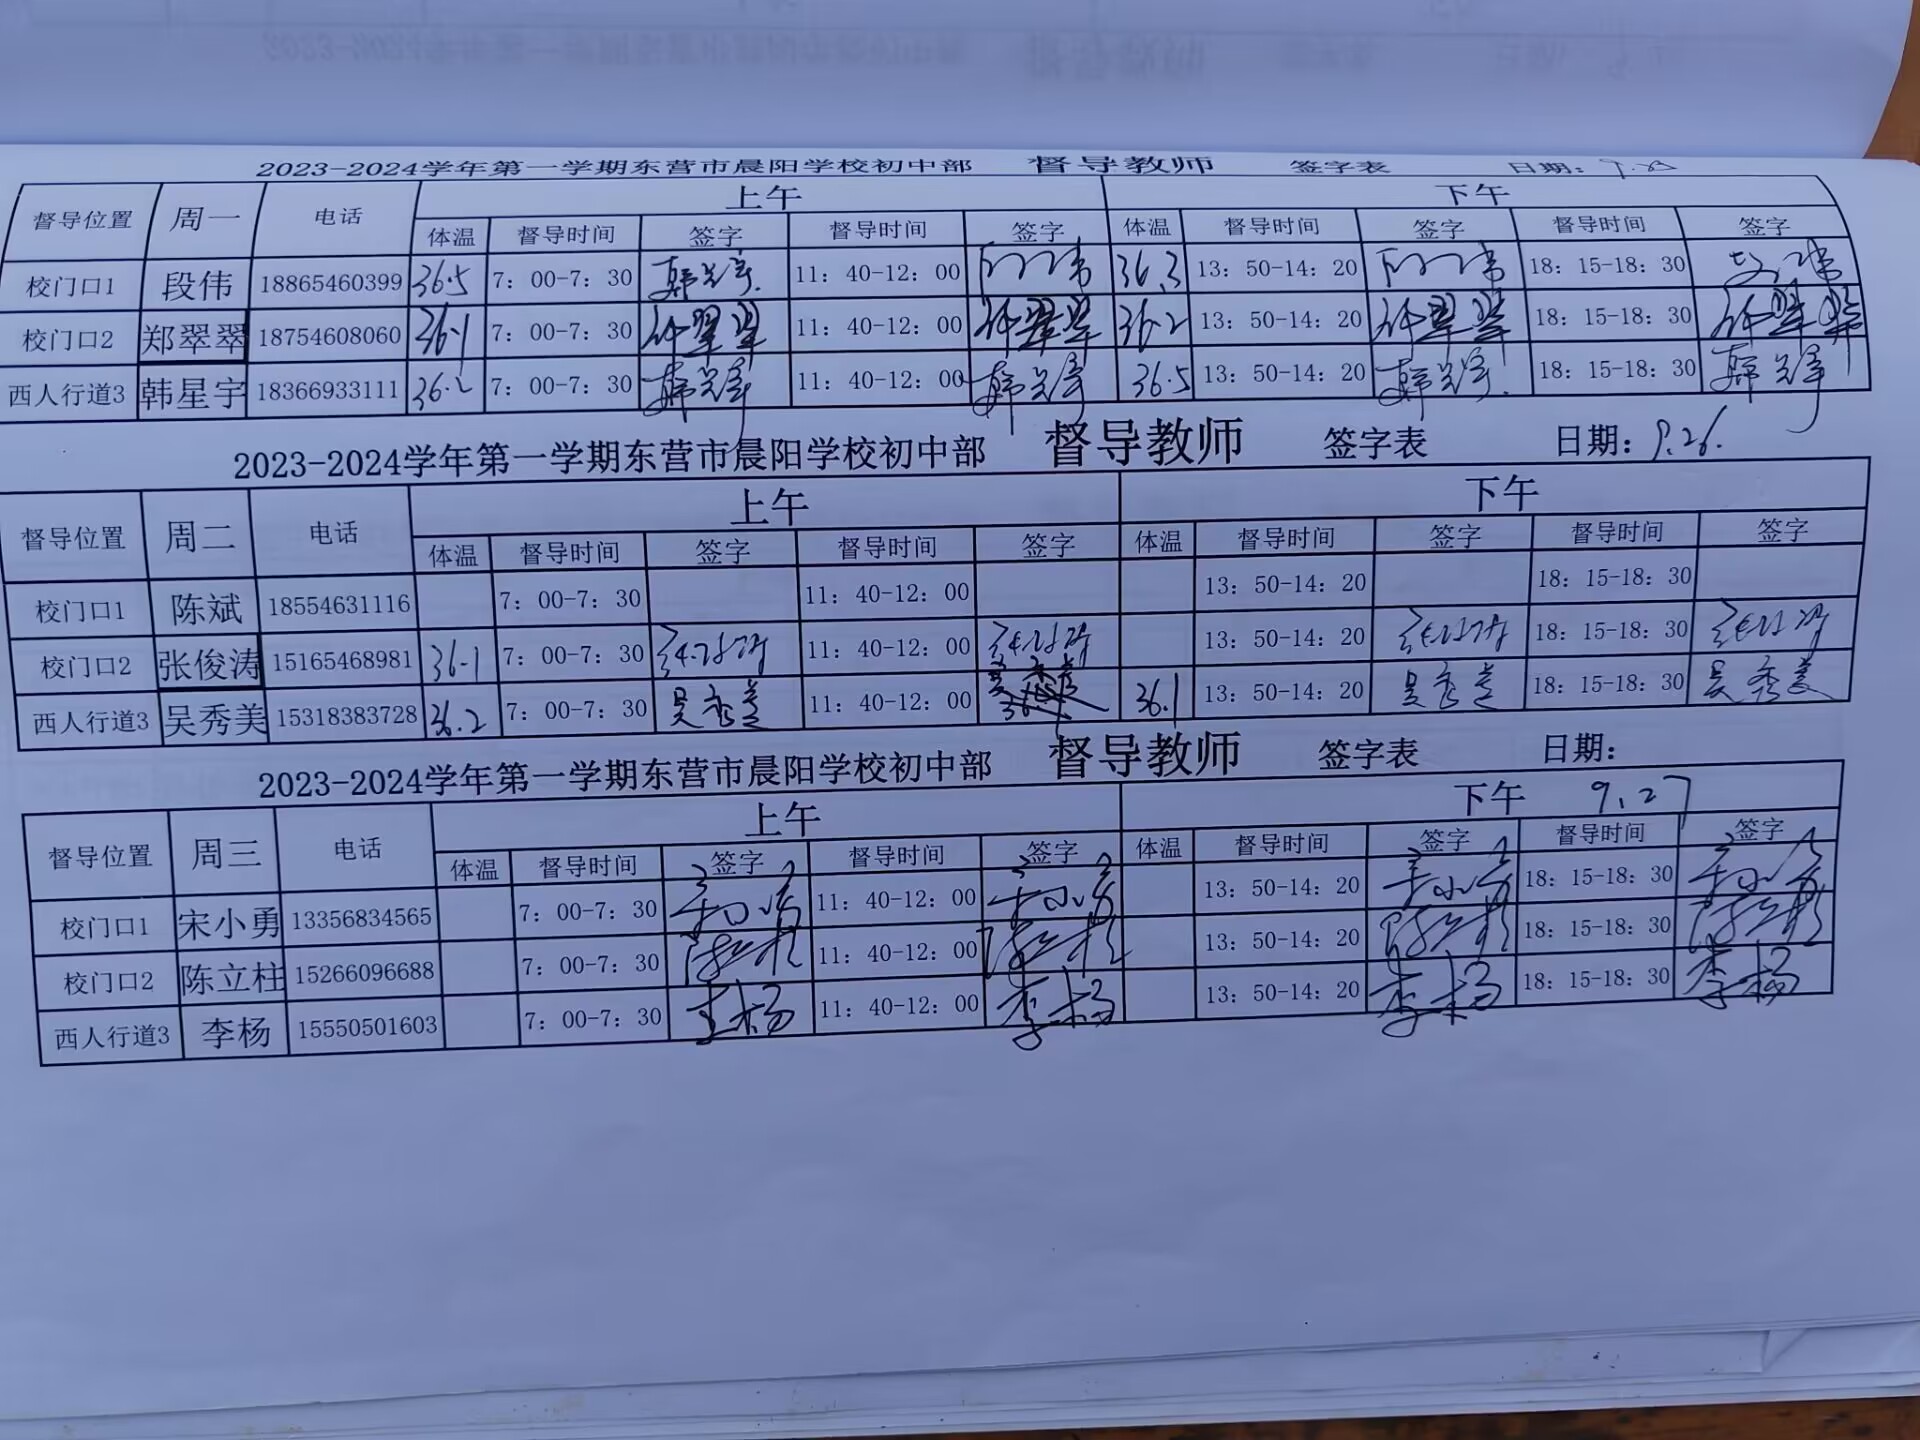 2023-2024学年第一学期东营市晨阳学校初中部 督导教师 签字表 日期:
督导位置 周一 电话 上午 下午
体温 督导时间 签字 督导时间 签字 体温 督导时间 签字 督导时间 签字
校门口1 段伟 18865460399 36.5 7：00-7：30 韩星宇 11：40-12：00 36.3 13：50-14：20 18：15-18：30
校门口2 郑翠翠 18754608060 36.1 7：00-7：30 郑翠翠 11：40-12：00 郑翠翠 36.2 13：50-14：20 郑翠翠 18：15-18：30 郑翠翠
西人行道3 韩星宇 18366933111 36.2 7：00-7：30 韩星宇 11：40-12：00 韩星宇 36.5 13：50-14：20 韩星宇 18：15-18：30 韩星宇
2023-2024学年第一学期东营市晨阳学校初中部 督导教师 签字表 日期：9.26.
督导位置 周二 电话 上午 下午
体温 督导时间 签字 督导时间 签字 体温 督导时间 签字 督导时间 签字
校门口1 陈斌 18554631116 7：00-7：30 11：40-12：00 13：50-14：20 18：15-18：30
校门口2 张俊涛 15165468981 36.1 7：00-7：30 11：40-12：00 13：50-14：20 18：15-18：30
西人行道3 吴秀美 15318383728 36.2 7：00-7：30 吴秀美 11：40-12：00 36.1 13：50-14：20 吴秀美 18：15-18：30 吴秀美
2023-2024学年第一学期东营市晨阳学校初中部 督导教师 签字表 日期：
督导位置 周三 电话 上午 下午 9.27
体温 督导时间 签字 督导时间 签字 体温 督导时间 签字 督导时间 签字
校门口1 宋小勇 13356834565 7：00-7：30 宋小勇 11：40-12：00 宋小勇 13：50-14：20 宋小勇 18：15-18：30 宋小勇
校门口2 陈立柱 15266096688 7：00-7：30 陈立柱 11：40-12：00 陈立柱 13：50-14：20 陈立柱 18：15-18：30 陈立柱
西人行道3 李杨 15550501603 7：00-7：30 李杨 11：40-12：00 李杨 13：50-14：20 李杨 18：15-18：30 李杨